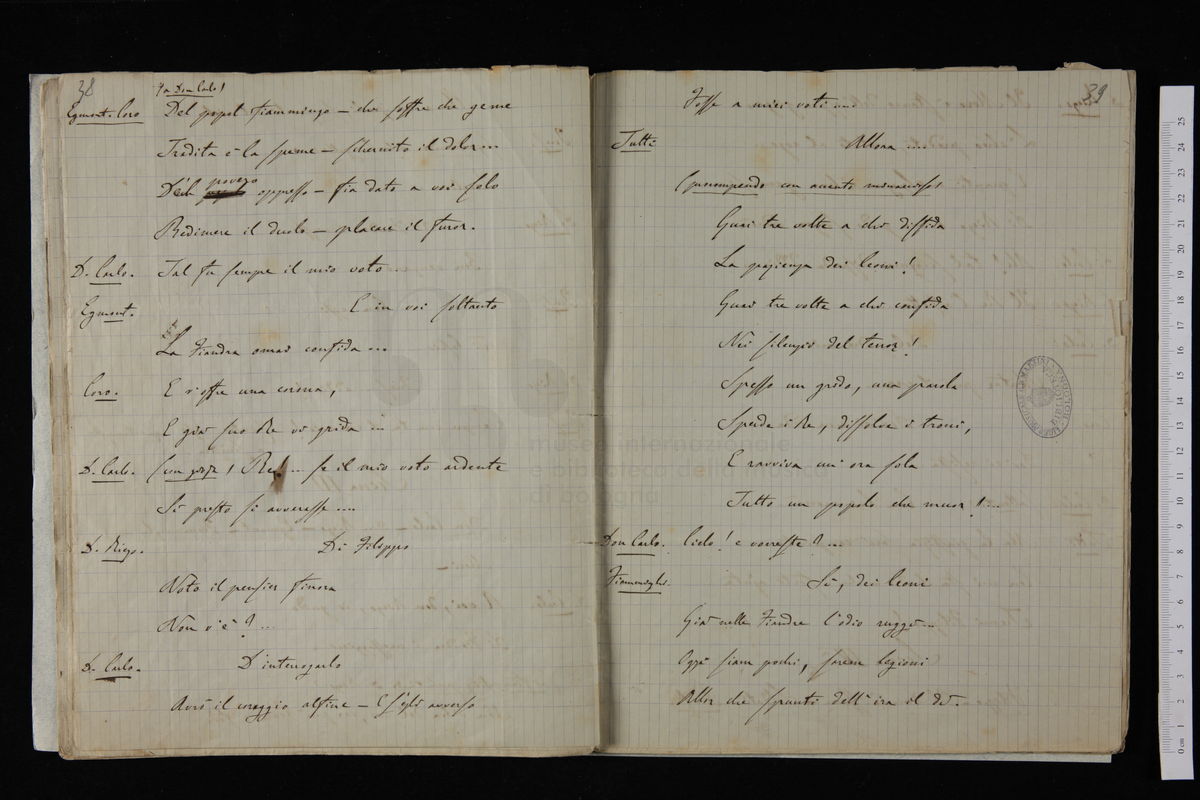 38
(a Don Carlo)
Egmont. Coro Del popol fiammingo – che soffre che geme
Tradita è la speme – schernito il dolor...
povero
Deh! oppresso – fia dato a voi solo
Redimere il duolo – placare il furor.
D. Carlo. Tal fu sempre il mio voto...
Egmont. E in voi soltanto
La Fiandra omai confida...
Coro. E v'offre una corona,
E già suo Re vi grida...
D. Carlo. (con gioja) Re!... se il mio voto ardente
Sì presto si avverasse....
D. Rigo. Di Filippo
Noto il pensier finora
Non v'è?...
D. Carlo. D'interrogarlo
Avrò il coraggio alfine – E s'egli avverso
39
Fosse a miei voti...
Tutti Allora....
(prorompendo con accento minaccioso)
Guai tre volte a chi diffida
La pazienza dei leoni!
Guai tre volte a chi confida
Nei silenzio del terror!
Spesso un grido, una parola
Sperde i Re, dissolve i troni,
E ravviva un'ora sola
Tutto un popolo che muor!...
Don Carlo. Cielo! e vorreste?...
Fiamminghi. Sì, dei leoni
Già nelle Fiandre l'odio ruggì...
Oggi siam pochi, sarem legioni
Allor che spunti dell'ira il dì.
museo internazionale
di bologna
0 cm 1 2 3 4 5 6 7 8 9 10 11 12 13 14 15 16 17 18 19 20 21 22 23 24 25